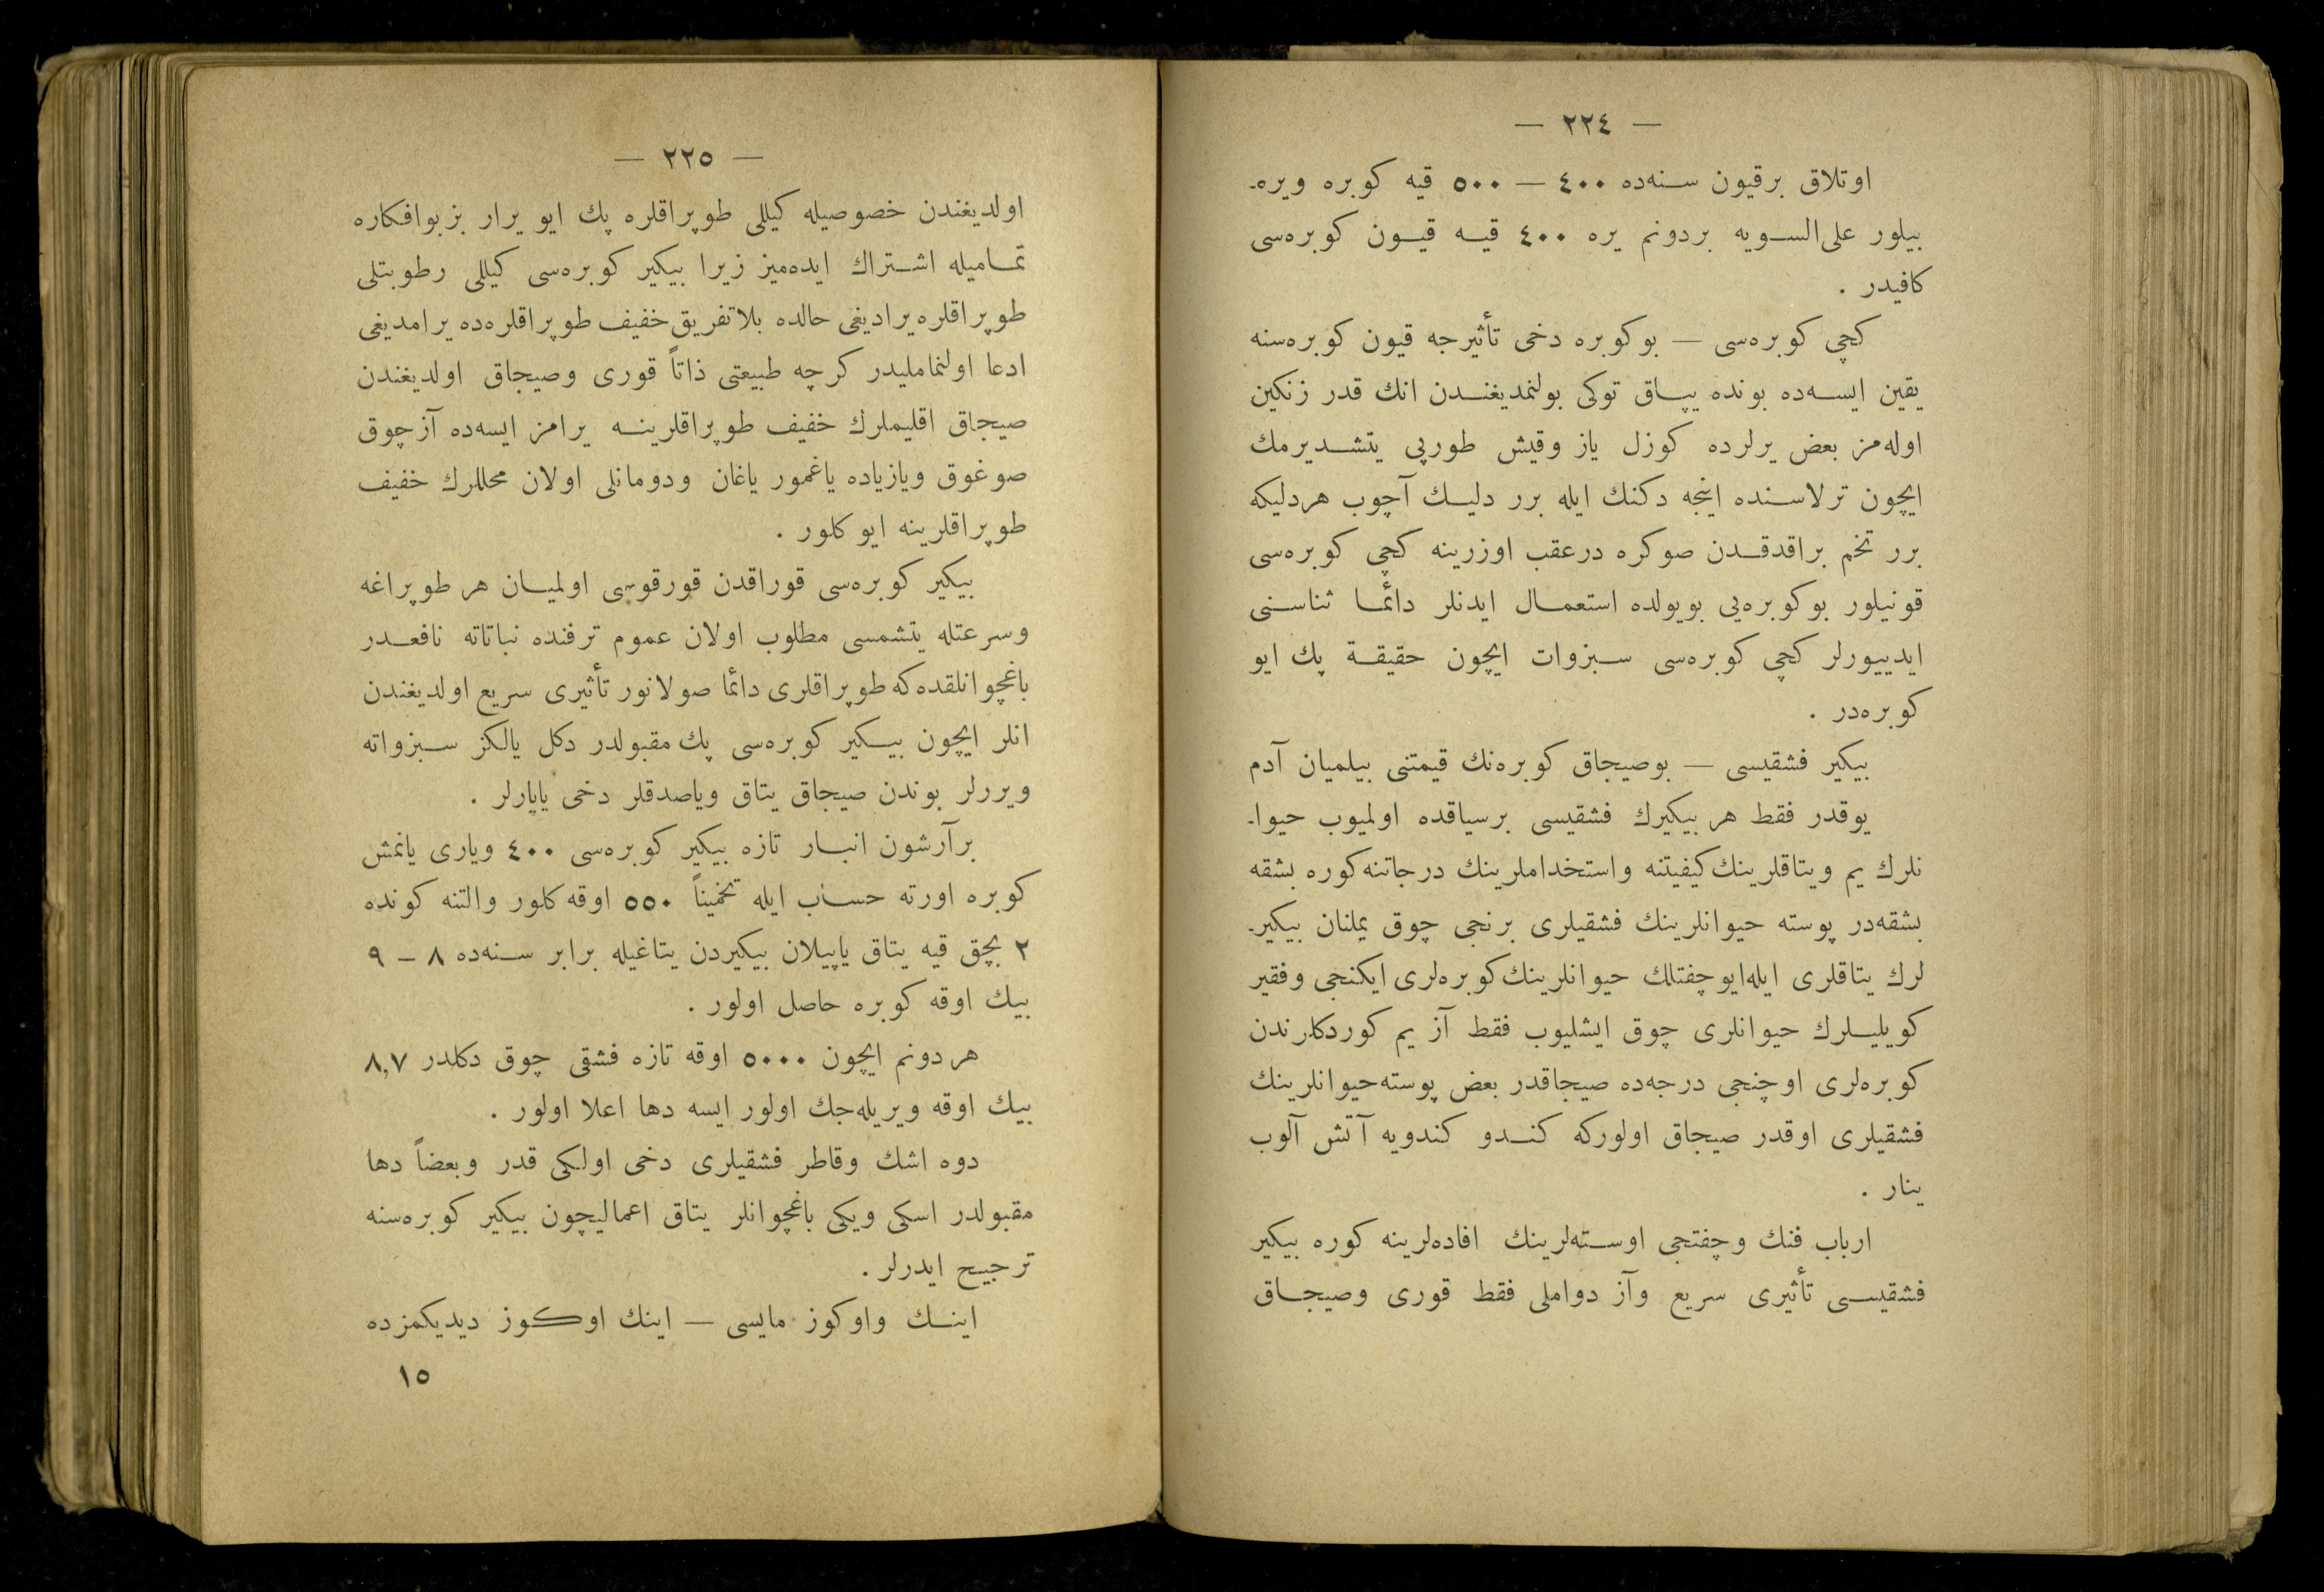 — ٢٢٤ —
اوتلاق برقيون سنه‌ده ٤٠٠ — ٥٠٠ قيه كوبره ويره‌ـ
بيلور على السويه بردونم يره ٤٠٠ قيه قيون كوبره‌سى
كافيدر .
كچى كوبره‌سى — بوكوبره دخى تأثيرجه قيون كوبره‌سنه
يقين ايسه‌ده بونده يپاق توكى بولنمديغندن انك قدر زنكين
اوله‌مز بعض يرلرده كوزل ياز وقيش طورپى يتشديرمك
ايچون ترلاسنده اينجه دكنك ايله برر دليك آچوب هردليكه
برر تخم براقدقدن صوكره درعقب اوزرينه كچى كوبره‌سى
قونيلور بوكوبره‌يى بويولده استعمال ايدنلر دائما ثناسنى
ايدييورلر كچى كوبره‌سى سبزوات ايچون حقيقة پك ايو
كوبره‌در .
بيكير فشقيسى — بوصيجاق كوبره‌نك قيمتنى بيلميان آدم
يوقدر فقط هر بيكيرك فشقيسى برسياقده اولميوب حيواـ
نلرك يم ويتاقلرينك كيفيتنه واستخداملرينك درجاتنه كوره بشقه
بشقه‌در پوسته حيوانلرينك فشقيلرى برنجى چوق يملنان بيكيرـ
لرك يتاقلرى ايله ايو چفتلك حيوانلرينك كوبره‌لرى ايكنجى وفقير
كويليلرك حيوانلرى چوق ايشليوب فقط آز يم كوردكلرندن
كوبره‌لرى اوچنجى درجه‌ده صيجاقدر بعض پوسته حيوانلرينك
فشقيلرى اوقدر صيجاق اولوركه كندو كندويه آتش آلوب
ينار .
ارباب فنك وچفتجى اوسته‌لرينك افاده‌لرينه كوره بيكير
فشقيسى تأثيرى سريع وآز دواملى فقط قورى وصيجاق
— ٢٢٥ —
اولديغندن خصوصيله كيللى طوپراقلره پك ايو يرار بزبوافكاره
تماميله اشتراك ايده‌ميز زيرا بيكير كوبره‌سى كيللى رطوبتلى
طوپراقلره يراديغى حالده بلا تفريق خفيف طوپراقلره‌ده يرامديغى
ادعا اولنماملیدر كرچه طبيعتى ذاتاً قورى وصيجاق اولديغندن
صيجاق اقليملرك خفيف طوپراقلرينه يرامز ايسه‌ده آزچوق
صوغوق ويازياده ياغمور ياغان ودومانلى اولان محللرك خفيف
طوپراقلرينه ايوكلور .
بيكير كوبره‌سى قوراقدن قورقوسى اولميان هر طوپراغه
وسرعتله يتشمسى مطلوب اولان عموم ترفنده نباتاته نافعدر
باغچوانلقده كه طوپراقلرى دائما صولانور تأثيرى سريع اولديغندن
انلر ايچون بيكير كوبره‌سى پك مقبولدر دكل يالكز سبزواته
ويررلر بوندن صيجاق يتاق وياصدقلر دخى ياپارلر .
برآرشون انبار تازه بيكير كوبره‌سى ٤٠٠ ويارى يانمش
كوبره اورته حساب ايله تخميناً ٥٥٠ اوقه كلور والتنه كونده
٢ بچق قيه يتاق ياپيلان بيكيردن يتاغيله برابر سنه‌ده ٨ – ٩
بيك اوقه كوبره حاصل اولور .
هر دونم ايچون ٥٠٠٠ اوقه تازه فشقى چوق دكلدر ٨,٧
بيك اوقه ويريله‌جك اولور ايسه دها اعلا اولور .
دوه اشك وقاطر فشقيلرى دخى اولكى قدر وبعضاً دها
مقبولدر اسكى ويكى باغچوانلر يتاق اعماليچون بيكير كوبره‌سنه
ترجيح ايدرلر .
اينك واوكوز مايسى — اينك اوكوز ديديكمزده
١٥